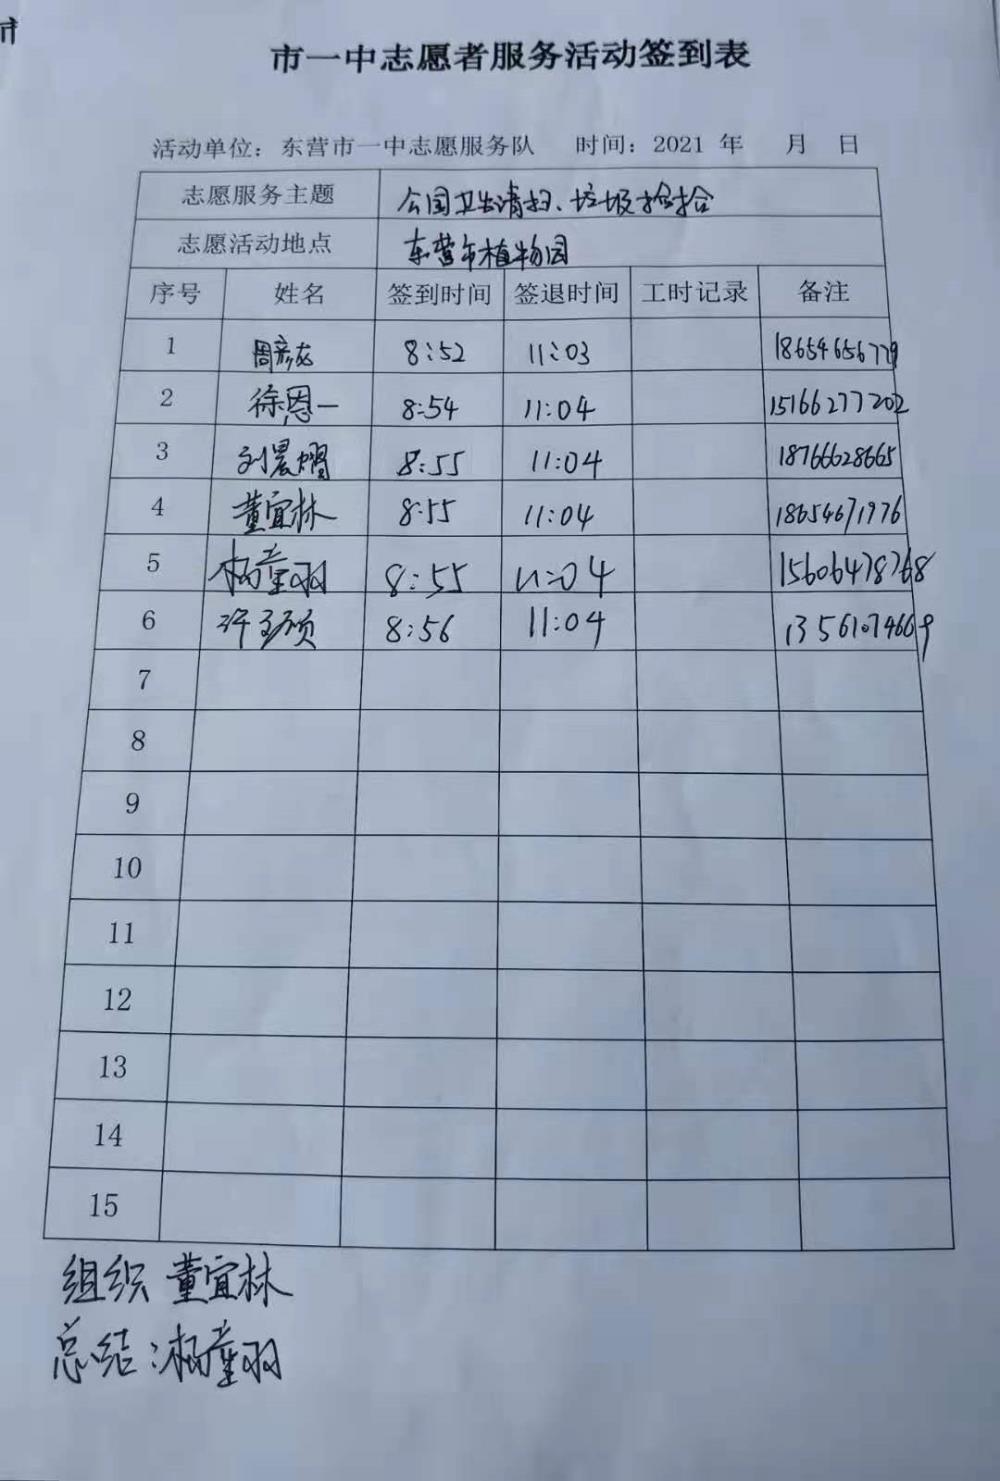 市
市一中志愿者服务活动签到表
活动单位：东营市一中志愿服务队 时间：2021 年 月 日
志愿服务主题 公园卫生清扫、垃圾捡拾
志愿活动地点 东营市植物园
序号 姓名 签到时间 签退时间 工时记录 备注
1 周彦龙 8:52 11:03 18654656779
2 徐恩一 8:54 11:04 15166277202
3 刘晨熠 8:55 11:04 18766628665
4 董宜林 8:55 11:04 18654671976
5 杨童羽 8:55 11:04 15606478768
6 许玉硕 8:56 11:04 13561074669
7
8
9
10
11
12
13
14
15
组织 董宜林
总结:杨童羽